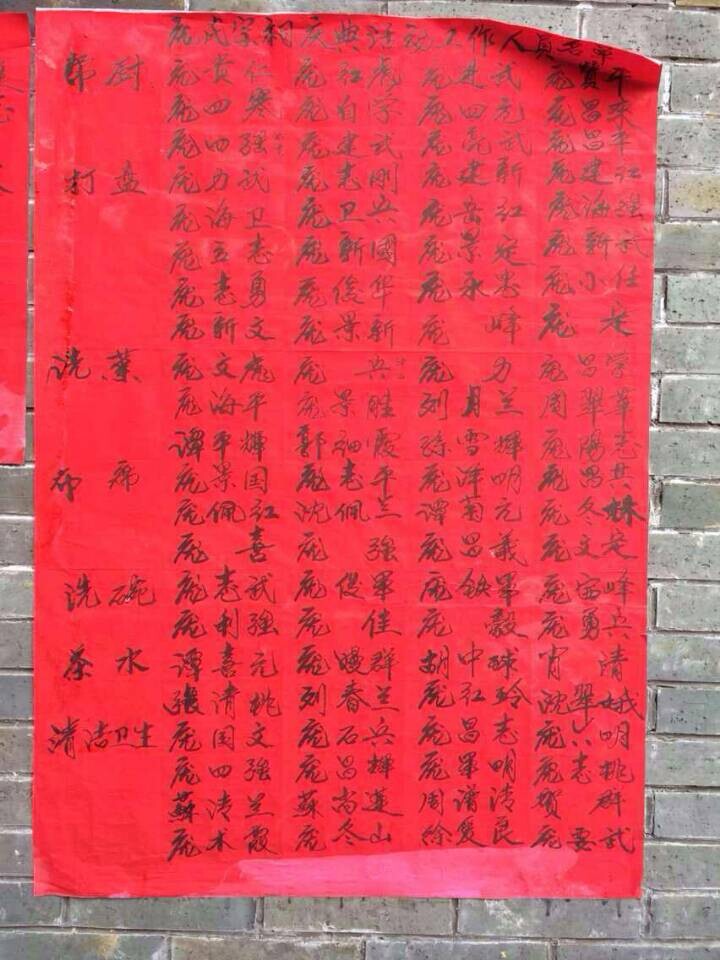 庞氏宗祠庆典活动工作人员名单
帮厨 庞贵仁 庞红彪 庞建武 庞赞平
庞四寒 庞自字 庞四元 庞昌来
庞四强 庞建武 庞亮武 庞昌平
打盘 庞力武 庞志刚 庞建新 庞建红
庞海卫 庞卫兵 庞岳红 庞海强
庞立志 庞新國 庞景定 庞新武
庞志勇 庞俊华 庞永忠 庞小任
庞新文 庞景新 庞峰 庞定
洗菜 庞文彪 庞兵 庞力 庞昌字
庞海平 庞景胜 列月兰 周翠華
谭平輝 郭細霞 孫雪輝 庞陽志
布席 庞景国 庞志平 庞泽明 庞昌共
庞佩红 沈佩兰 谭菊元 庞冬妹
庞喜 庞强 庞昌義 庞文定
洗碗 庞志武 庞俊軍 庞铁軍 庞富峰
庞利强 庞佳 庞毅 庞勇兵
茶水 谭喜元 庞嫂群 胡中球 肖清
張清桃 列春兰 庞红玲 沈翠娥
清洁卫生 庞国文 庞石兵 庞昌志 庞六明
庞四强 庞昌輝 庞軍明 庞志桃
蘇清兰 蘇尚蓮 周谱清 贺群
庞术霞 庞冬山 徐复良 庞要武